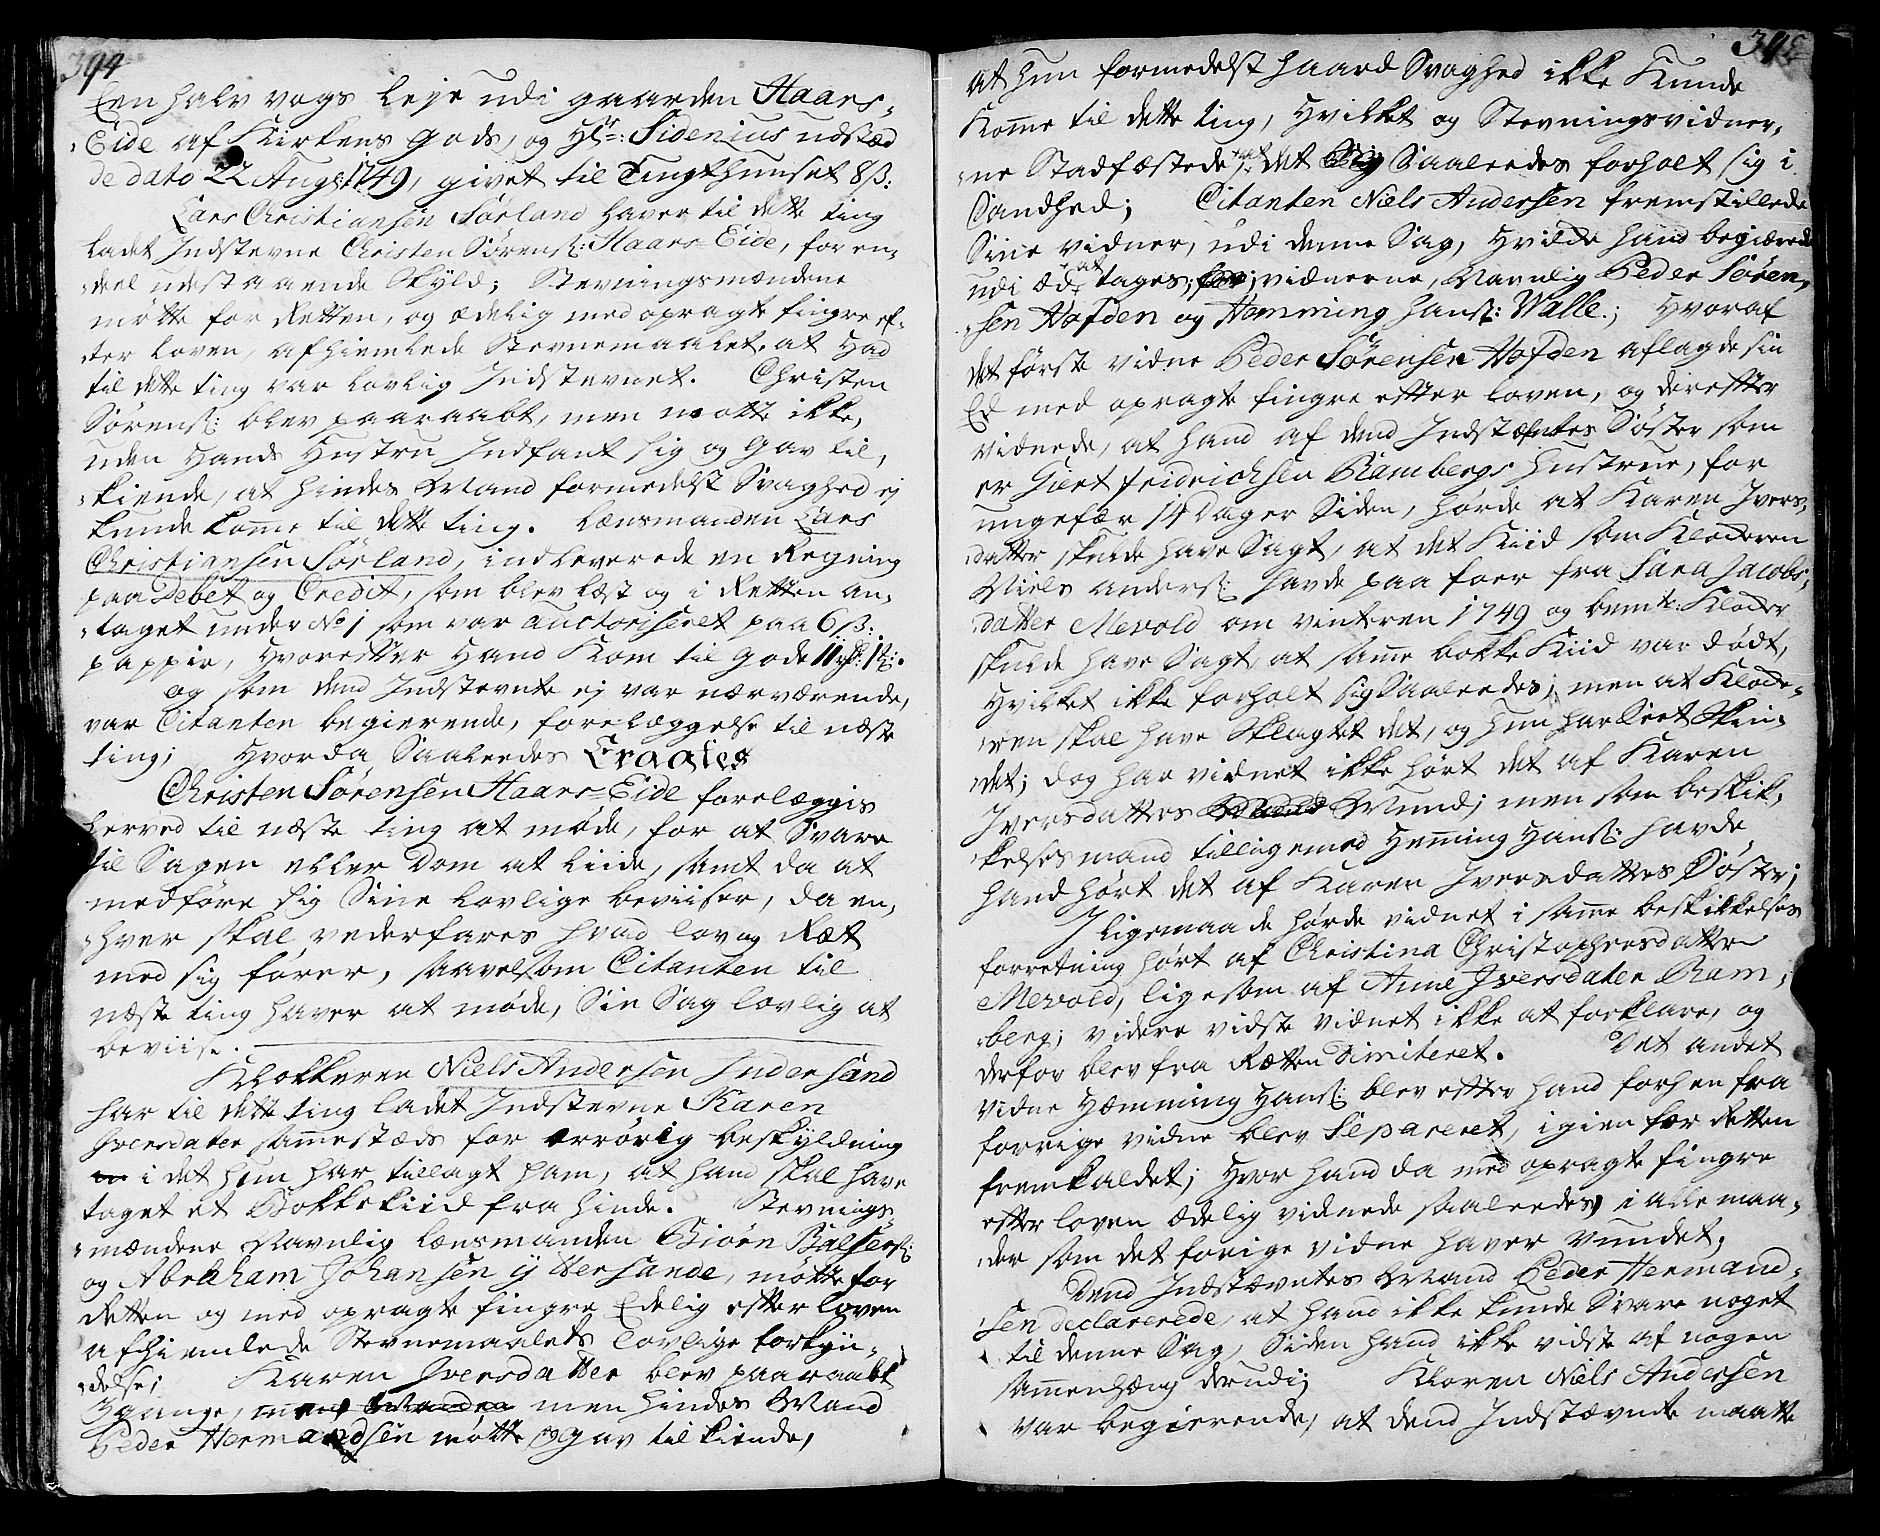 394
Een halv vogs leje udi gaarden Haars-
Eide af Kirkens Gods, og Hr: Sidenius udstæd
de dato 22 Aug: 1749, givet til Tugthuuset 8 ß:
Lars Christiansen Sørland haver til dette ting
ladet Indstevne Christen Sørens: Haars-Eide, for en-
deel udestaaende Skyld; Stevningsmændene
møtte for Retten, og ædelig med opragte fingre ef-
ter loven, afhiemlede Stevnemaalet, at Had
til dette ting var lovlig Indstevnet. Christen
Sørens: blev paaraabt, men møtte ikke,
uden Hands Hustru Indfant sig og gav til,
kiende, at hindes Mand formedelst Svaghed ej
kunde komme til dette ting. Lænsmanden Lars
Christiansen Sørland, indleverede en Regning
paa Debet og Credit, som blev læst og i Retten an-
taget under No 1 som var auctoriseret paa 6 ß:
pappir, Hvorefter Hand Kom til gode
og som dend Indstevnte ej var nærværende,
var Citanten begierende, forelæggelse til næste
ting; Hvorda Saaleedes Eragtes
Christen Sørensen Haars-Eide forelæggis
herved til næste ting at møde, for at Svare
til Sagen eller Dom at liide, samt da at
medføre sig Sine lovlige beviiser, da en-
hver skal vederfares hvad lov og Ræt
med sig fører, saavelsom Citanten til
næste ting haver at møde, Sin Sag lovlig at
beviise.
Klokkeren Niels Andersen Indersand
har til dette ting ladet Indstevne Karen
Iversdater sammestæds for ærrørig beskyldning
i det hun har tillagt ham, at hand skal have
taget et Bokkekiid fra hinde. Stevnings-
mændene Navnlig lænsmanden Biørn Balsers:
og Abraham Johansen Yttersande, møtte for
Retten og med opragte fingre Edelig efter loven
afhiemlede Stevnemaalets lovlige forkyn-
delse; Karen Iversdatter blev paaraabt
3 gange, men hindes Mand
Peder Hermandsen møtte og gav tilkiende,
395
at hun formedelst haard Svaghed ikke Kunde
Komme til dette ting, Hvilket og Stevningsvidner-
ne Stadfæstede, at det Saaleedes forholt sig i
Sandhed; Citanten Niels Andersen fremstillede
Sine vidner, udi denne Sag, Hvilke hand begiærede
udi æd at tages; vidnerne, Navnlig Peder Søren-
sen Hafden og Hemming Hans: Walle.; Hvoraf
det første vidne Peder Sørensen Hafden aflagde sin
Ed med opragte fingre efter loven, og derefter
vidnede, at hand af dend Indstæfntes Søster som
er Giert fridrichsen Rambergs Hustrue, for
ungefær 14 Dager Siden, hørde at Karen Ivers-
datter skulde have Sagt, at det Kiid som Klockeren
Niels Anders: havde paa foer fra Sara Jacobs-
datter Mevold om vinteren 1749 og bemte: Klocker
skulde have Sagt, at samme bokke Kiid var dødt,
Hvilket ikke forholt sig Saaleedes; men at Klocke-
ren skal have Slagtet det, og hun har Seet Skin-
det; dog har vidnet ikke hørt det af Karen
Iversdatters Mund; men som beskik-
kelses mand tilligemed Hemming Hans: havde
hand hørt det af Karen Iversdatters Søster;
I ligemaade hørde vidnet i samme beskikkelses
forretning hørt af Christina Christophersdatter
Mevold, ligesom af Anne Iversdater Ram-
berg; videre vidste vidnet ikke at forklare, og
derfor blev fra Rætten Dimiteret. Det andet
vidne Hæmming Hans: blev efter hand forhen fra
forrige vidne blev Separeret, igien for Retten
fremkaldet; Hvor hand da med opragte fingre
efter loven ædelig vidnede saaleedes, i alle maa-
der som det forige vidne haver vundet,
Dend Indstævntes Mand Peder Hermand-
sen declarerede, at hand ikke kunde Svare noget
til denne Sag, Siden hand ikke vidste af nogen
sammenhæng derudi; Kloren Niels Andersen
var begierende, at dend Indstævnte maatte